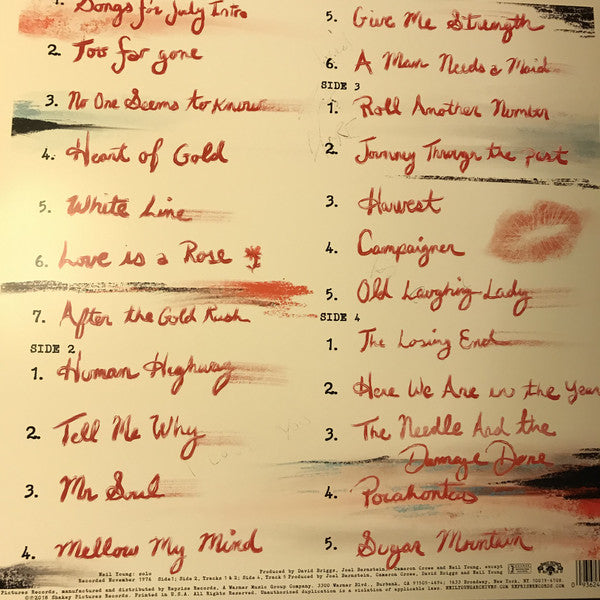 1. Songs for July Intro
2. Too far gone
3. No One Seems to Know
4. Heart of Gold
5. White Line
6. Love is a Rose
7. After the Gold Rush
SIDE 2
1. Human Highway
2. Tell Me Why
3. Mr Soul
4. Mellow My Mind
5. Give Me Strength
6. A Man Needs a Maid
SIDE 3
1. Roll Another Number
2. Journey Through the Past
3. Harvest
4. Campaigner
5. Old Laughing Lady
SIDE 4
1. The Losing End
2. Here We Are in the Year
3. The Needle And the
Damage Done
4. Pocahontas
5. Sugar Mountain
Neil Young: solo
Recorded November 1976 Side 1; Side 2, Tracks 1 & 2; Side 4, Track 5
Produced by David Briggs, Joel Bernstein, Cameron Crowe and Neil Young, except
Produced by Joel Bernstein, Cameron Crowe, David Briggs and Neil Young
Pictures Records, manufactured and distributed by Reprise Records, A Warner Music Group Company. 3300 Warner Blvd., Burbank, CA 91505-4694; 1633 Broadway, New York, NY 10019-6708.
Shakey Pictures Records. Printed in U.S.A. All Rights Reserved. Unauthorized duplication is a violation of applicable laws. NEILYOUNGARCHIVES.COM REPRISERECORDS.COM